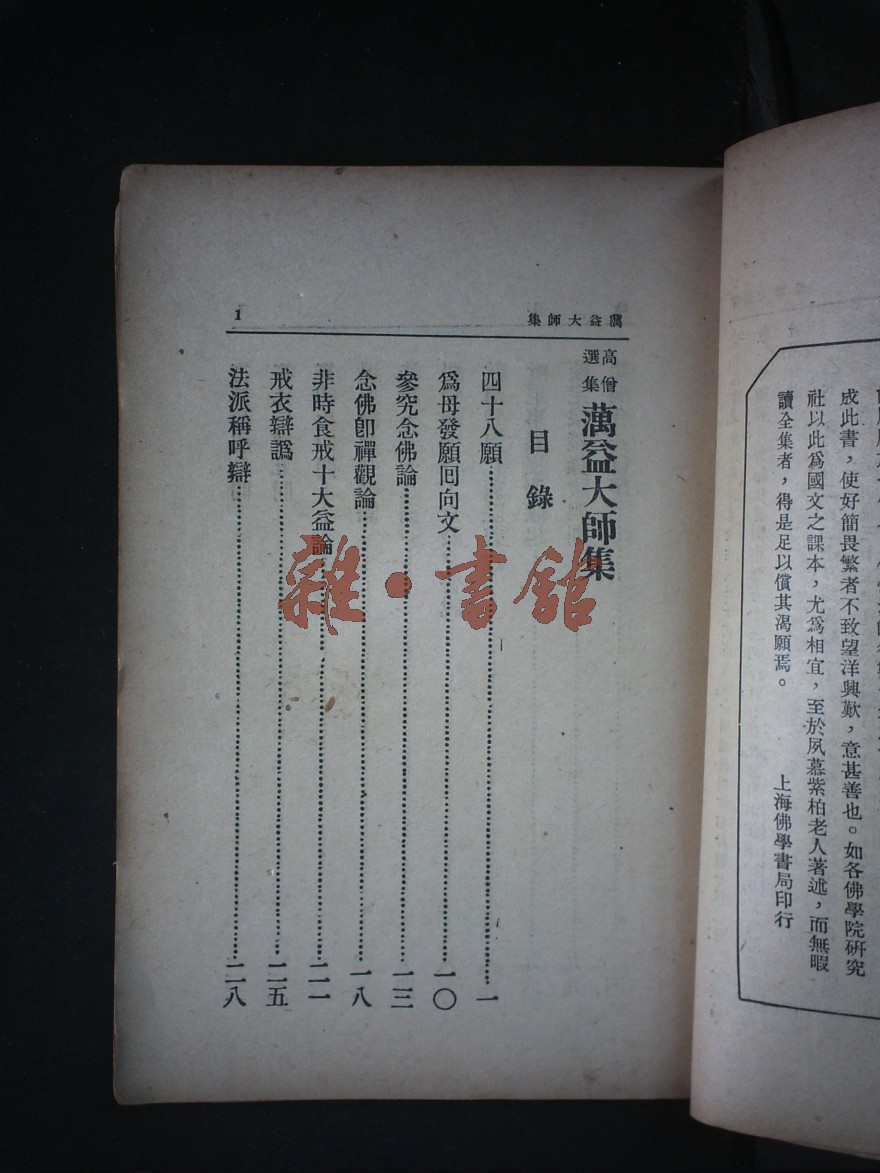 成此書，使好簡畏繁者不致望洋興歎，意甚善也。如各佛學院研究
社以此爲國文之課本，尤爲相宜，至於夙慕紫柏老人著述，而無暇
讀全集者，得是足以償其渴願焉。
上海佛學書局印行
蕅益大師集
1
高僧選集 蕅益大師集
目錄
四十八願……一
爲母發願囘向文……一〇
參究念佛論……一三
念佛卽禪觀論……一八
非時食戒十大益論……二一
戒衣辯譌……二五
法派稱呼辯……二八
雜·書館